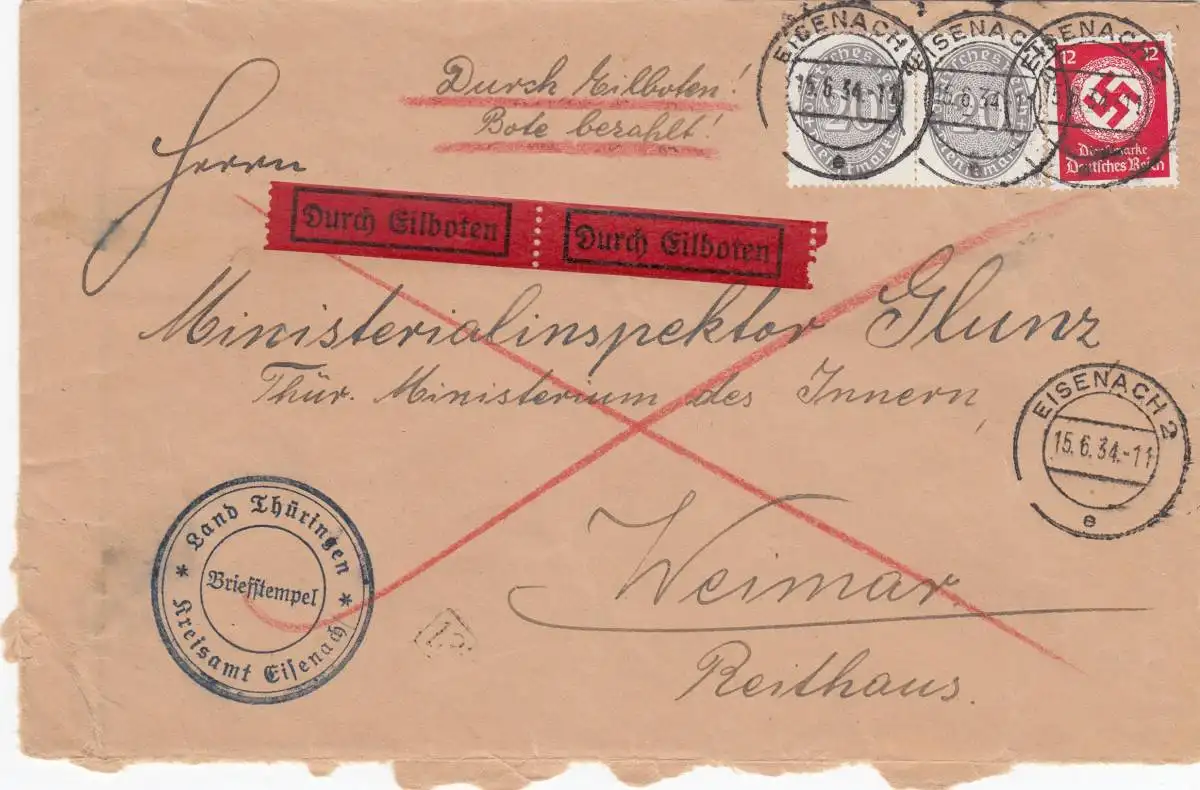 Durch Eilboten!
Bote bezahlt!
EISENACH 2
15.6.34.-11
e
EISENACH
15.6.34
EISENACH 2
15.6.34.-11
20
20
12 12
Dienstmarke
Deutsches Reich
Herrn
Durch Eilboten
Durch Eilboten
Ministerialinspektor Glunz
Thür. Ministerium des Innern,
EISENACH 2
15.6.34.-11
e
Weimar,
Reithaus.
* Land Thüringen *
Briefstempel
Kreisamt Eisenach